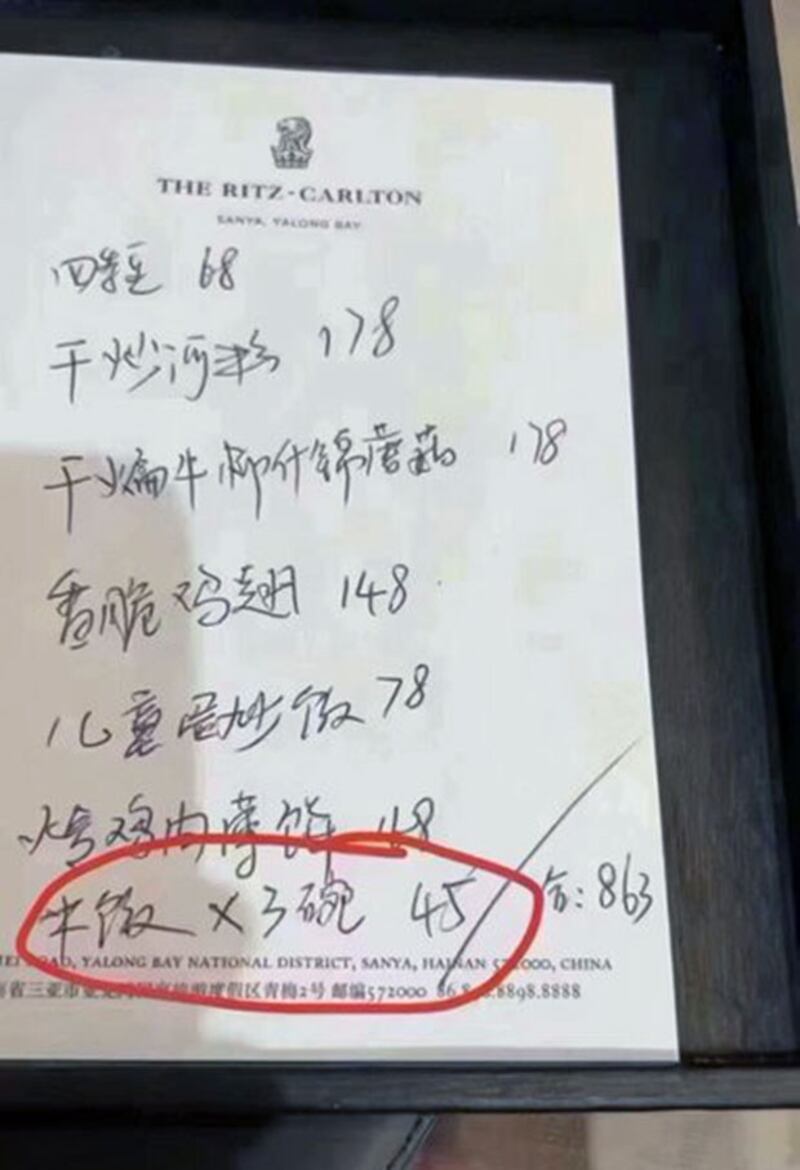 THE RITZ-CARLTON
SANYA, YALONG BAY
四 68
干炒河粉 178
干煸牛柳什锦蘑菇 178
香脆鸡翅 148
儿童蛋炒饭 78
烤鸡肉薄饼
米饭 × 3碗 45 合: 863
ROAD, YALONG BAY NATIONAL DISTRICT, SANYA, HAINAN 572000, CHINA
省三亚市亚龙湾国家旅游度假区青梅2号 邮编572000 8898.8888